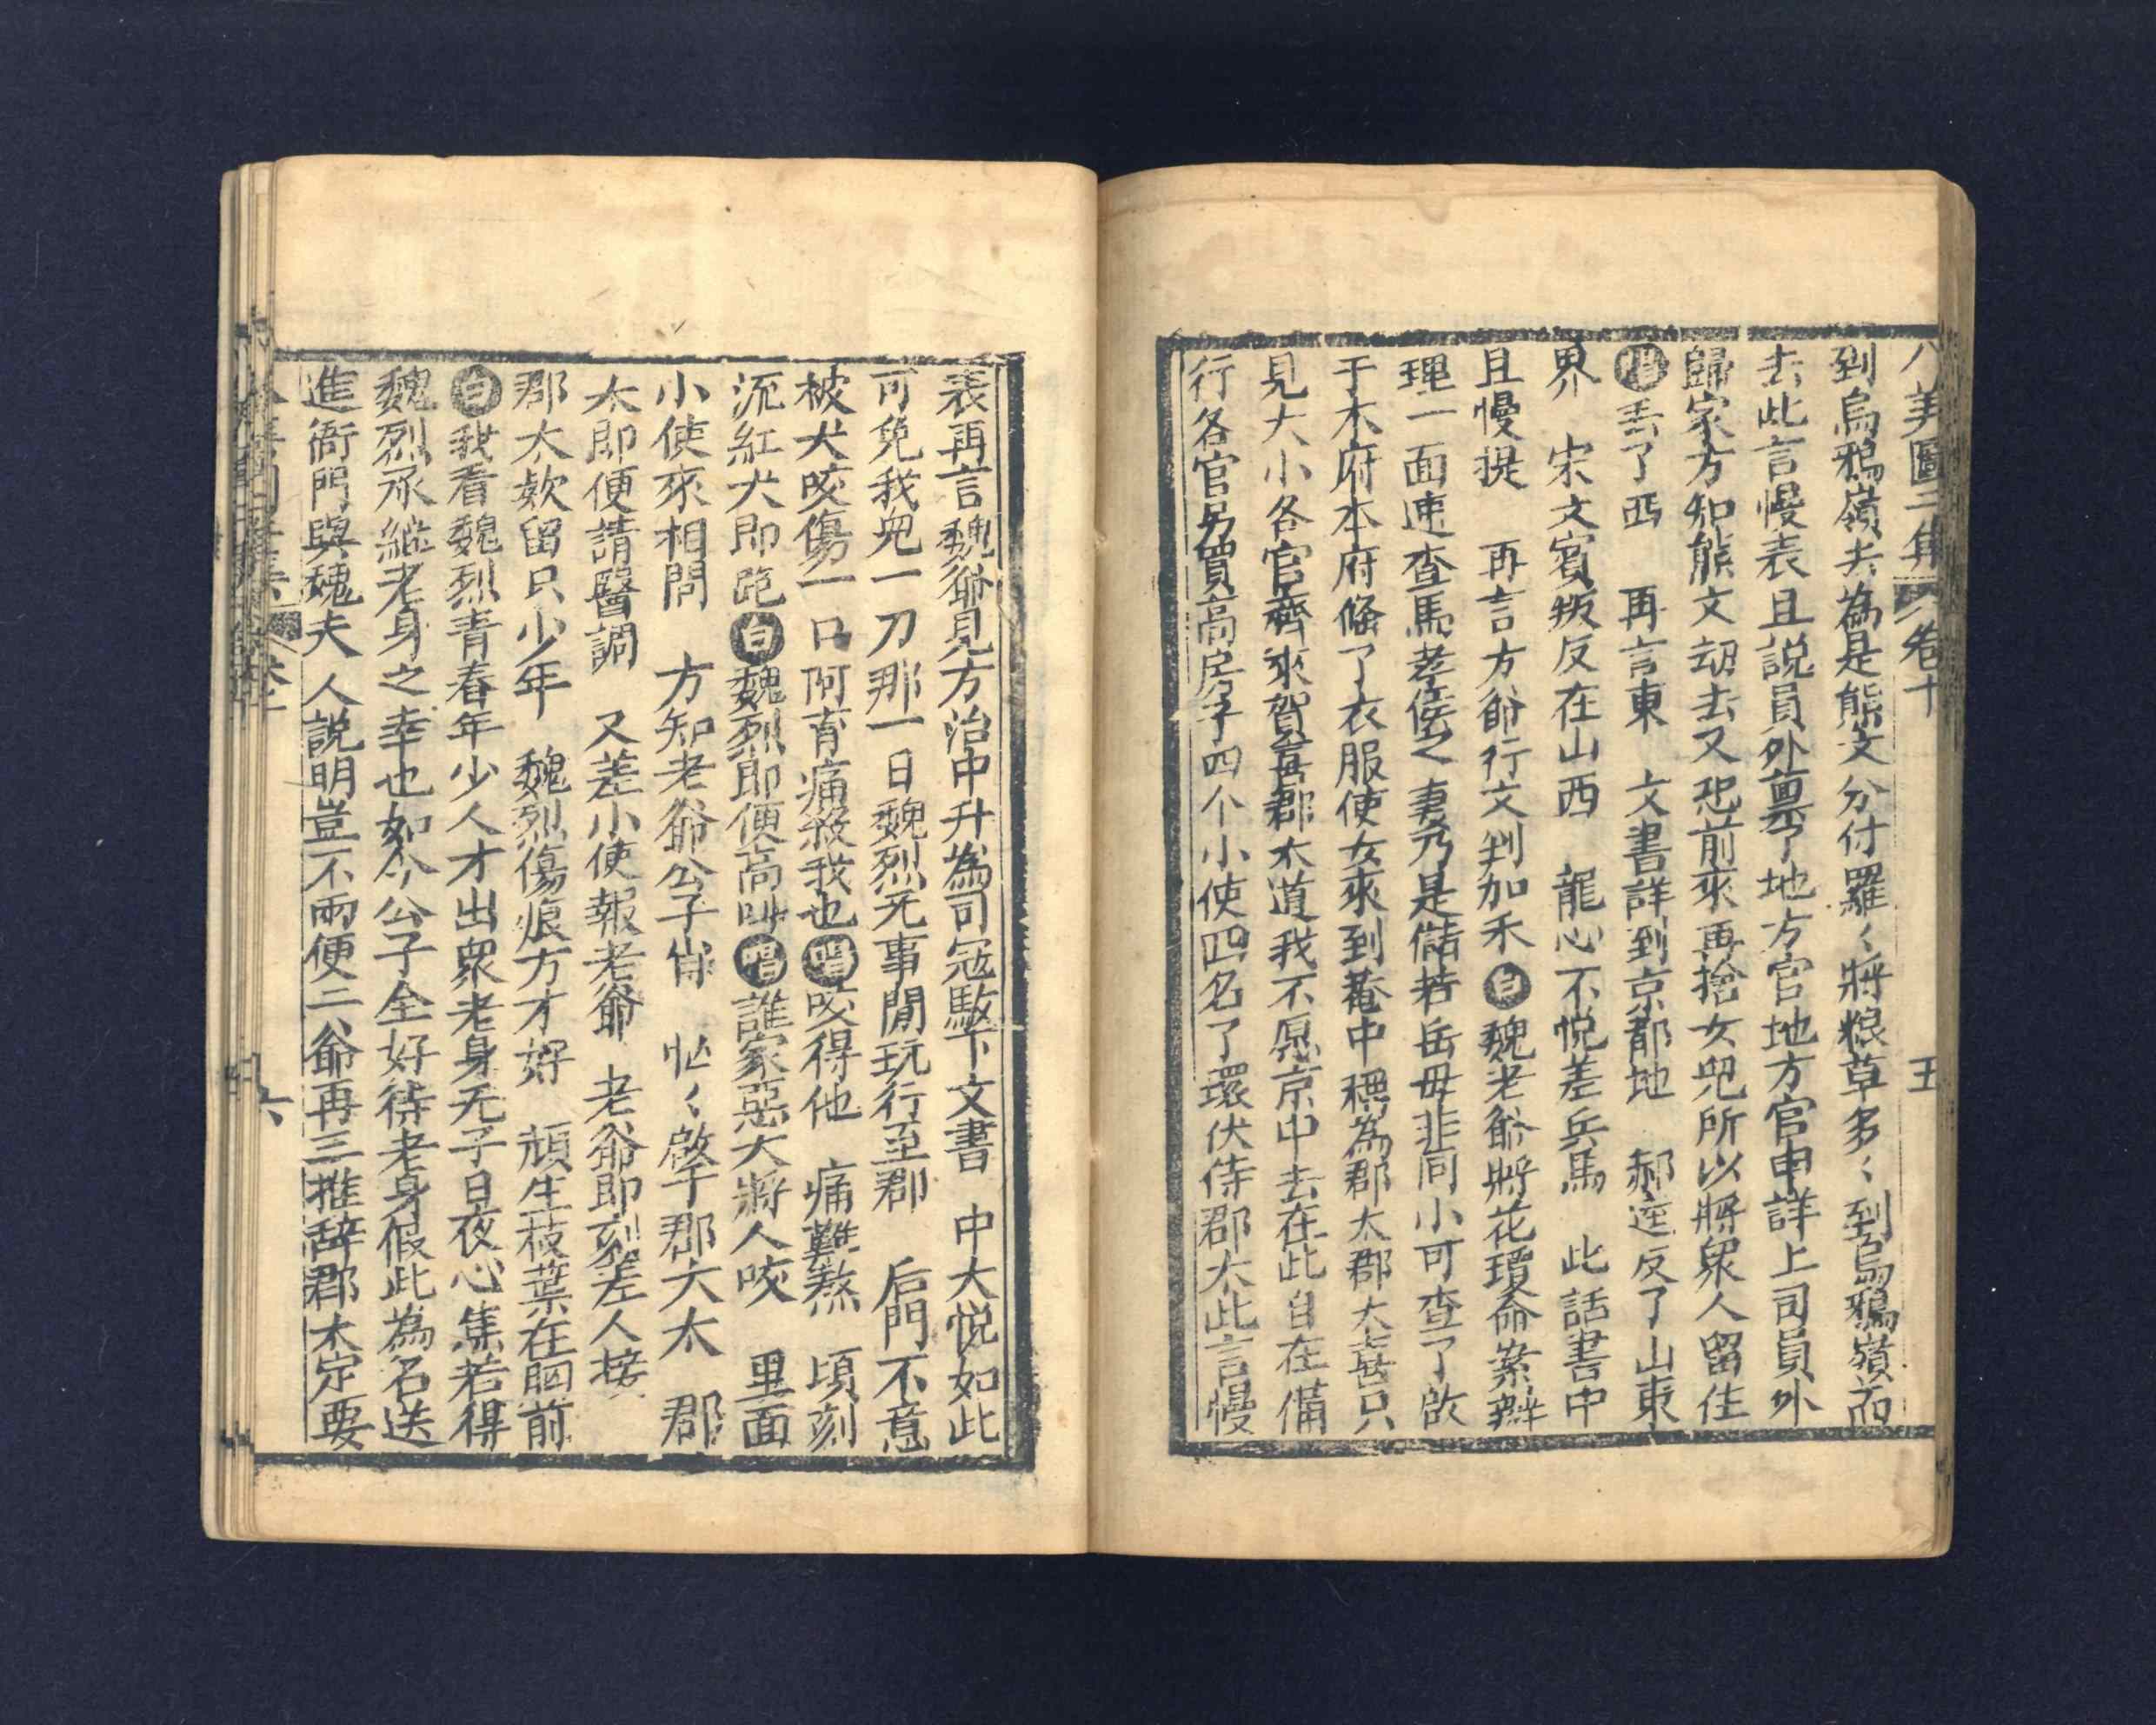 八美圖三集 卷十 五
到烏鴉嶺去為是熊文分付羅〻將粮草多〻到烏鴉嶺而
去此言慢表且説員外稟了地方官地方官申詳上司員外
歸家方知熊文刼去又恐前來再搶女兒所以將衆人留住
唱丢了西 再言東 文書詳到京都地 郝逵反了山東
界 宋文賓叛反在山西 龍心不悦差兵馬 此話書中
且慢提 再言方爺行文判加禾白魏老爺將花瓊侖案辦
理一面速查馬孝侯之妻乃是儲若岳母非同小可查了啟
于木府本府條了衣服使女來到菴中稱為郡太郡大喜只
見大小各官齊來賀喜郡太道我不愿京中去在此自在備
行各官另買高房子四个小使四名了環伏侍郡太此言慢
表再言魏爺見方治中升為司冦駁下文書 中大悦如此
可免我兒一刀那一日魏烈无事閒玩行至郡 后門不意
被犬咬傷一口阿育痛殺我也唱咬得他 痛難熬 頃刻
流紅犬即跑白魏烈即便高叫唱誰家惡犬將人咬 里面
小使來相問 方知老爺公子身 忙〻啟于郡太太 郡
太即便請醫調 又差小使報老爺 老爺即刻差人接
郡太欵留只少年 魏烈傷痕方才好 頑生枝葉在胭前
白我看魏烈青春年少人才出衆老身无子日夜心焦若得
魏烈承繼老身之幸也如今公子全好待老身假此為名送
進衙門與魏夫人説明豈不兩便二爺再三推辞郡太定要
六